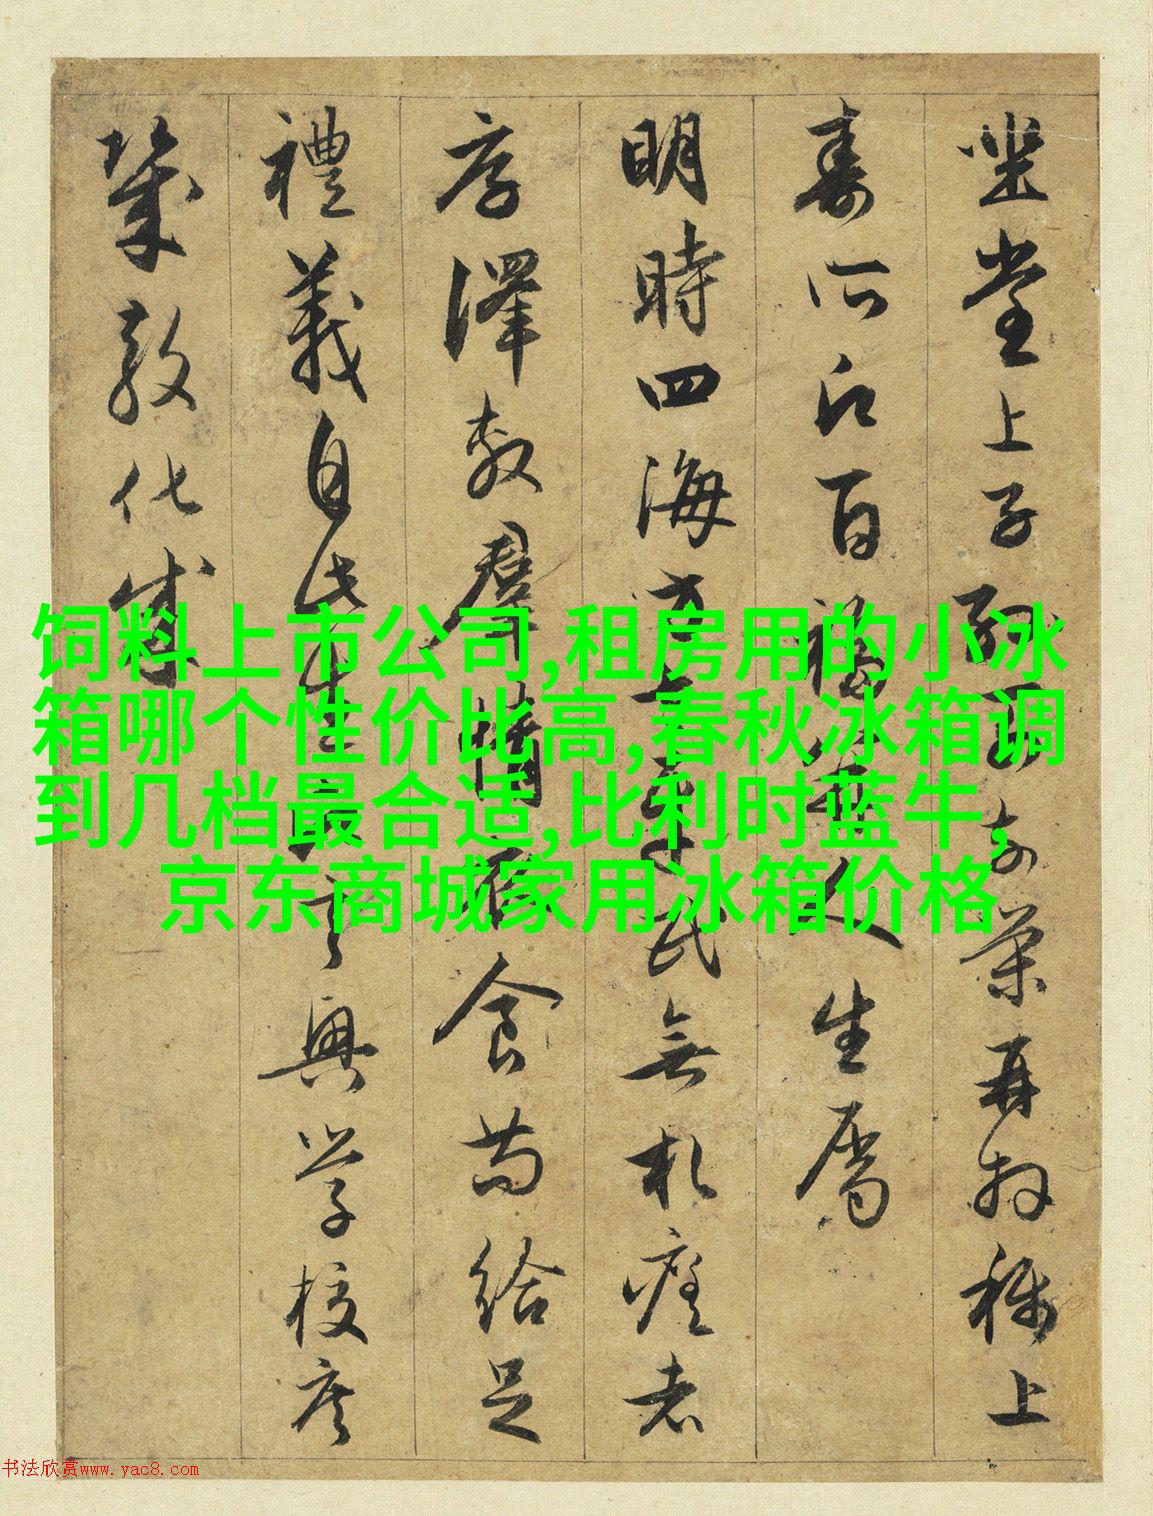 饲料上市公司,租房用的小冰
箱哪个性价比高,春秋冰箱调
到几档最合适,比利时蓝牛,
京东商城家用冰箱价格
坐堂上子孫前榮再拜稱上
壽百福人生
明時四海民無札瘥老
澤群情食苟給足
禮義自此生興學校庶
幾教化成
书法欣赏www.yac8.com